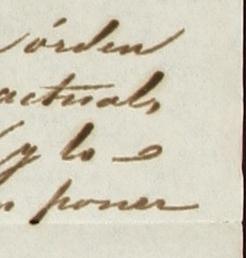 órden
actual,
y lo
poner